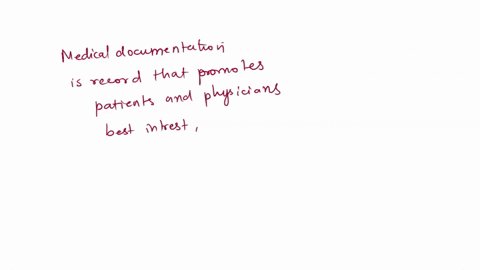 Medical documentation
is record that promotes
patients and physicians
best intrest,